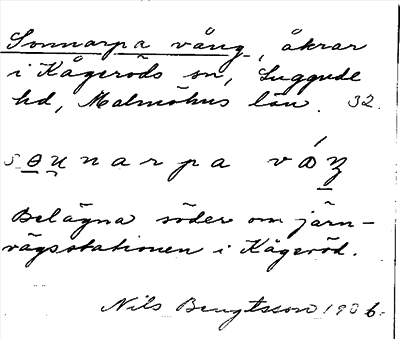 Sonnarpa vång, åkrar
i Kågeröds sn, Luggude
hd, Malmöhus län. 32.
Belägna söder om järn-
vägsstationen i Kågeröd.
Nils Bengtsson 1906.